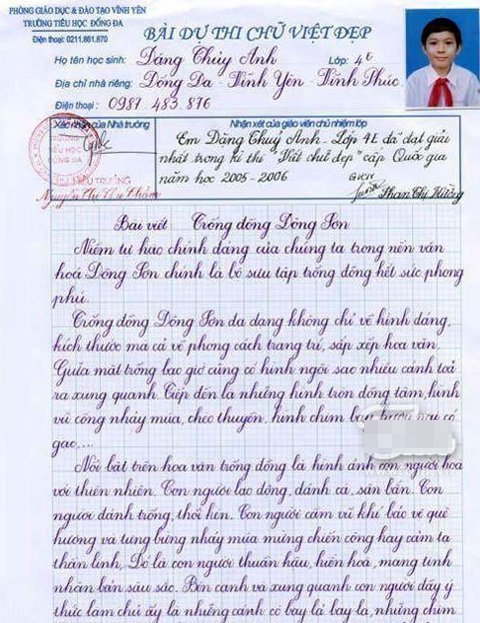 PHÒNG GIÁO DỤC & ĐÀO TẠO VĨNH YÊN
TRƯỜNG TIỂU HỌC ĐỐNG ĐA
Điện thoại: 0211.861.870
BÀI DỰ THI CHỮ VIỆT ĐẸP
Họ tên học sinh: Dáng Thùy Anh Lớp: 4E
Địa chỉ nhà riêng: Đống Đa - Vĩnh Yên - Vĩnh Phúc
Điện thoại: 0987 483 876
Xác nhận của Nhà trường
Nhận xét của giáo viên chủ nhiệm lớp
Em Dặng Thuỳ Anh - Lớp 4E đã đạt giải
nhất trong kì thi "Viết chữ đẹp" cấp Quốc gia
năm học 2005 - 2006
GVCN
Phan Thị Hường
Bài viết Trống đồng Đông Sơn
Niềm tự hào chính đáng của chúng ta trong nền văn
hoá Đông Sơn chính là bộ sưu tập trống đồng hết sức phong
phú.
Trống đồng Đông Sơn đa dạng không chỉ về hình dáng,
kích thước mà cả về phong cách trang trí, sắp xếp hoa văn.
Giữa mặt trống bao giờ cũng có hình ngôi sao nhiều cánh toả
ra xung quanh. Tiếp đến là những hình tròn đồng tâm, hình
vũ công nhảy múa, chèo thuyền, hình chim
gạc....
Nổi bật trên hoa văn trống đồng là hình ảnh con người hoà
với thiên nhiên. Con người lao động, đánh cá, săn bắn. Con
người đánh trống, thổi kèn. Con người cầm vũ khí bảo vệ quê
hương và tưng bừng nhảy múa mừng chiến công hay cảm tạ
thần linh. Đó là con người thuần hậu, hiền hoà, mang tính
nhân bản sâu sắc. Bên cạnh và xung quanh con người đầy ý
thức làm chủ ấy là những cánh cò bay lả bay la, những chim